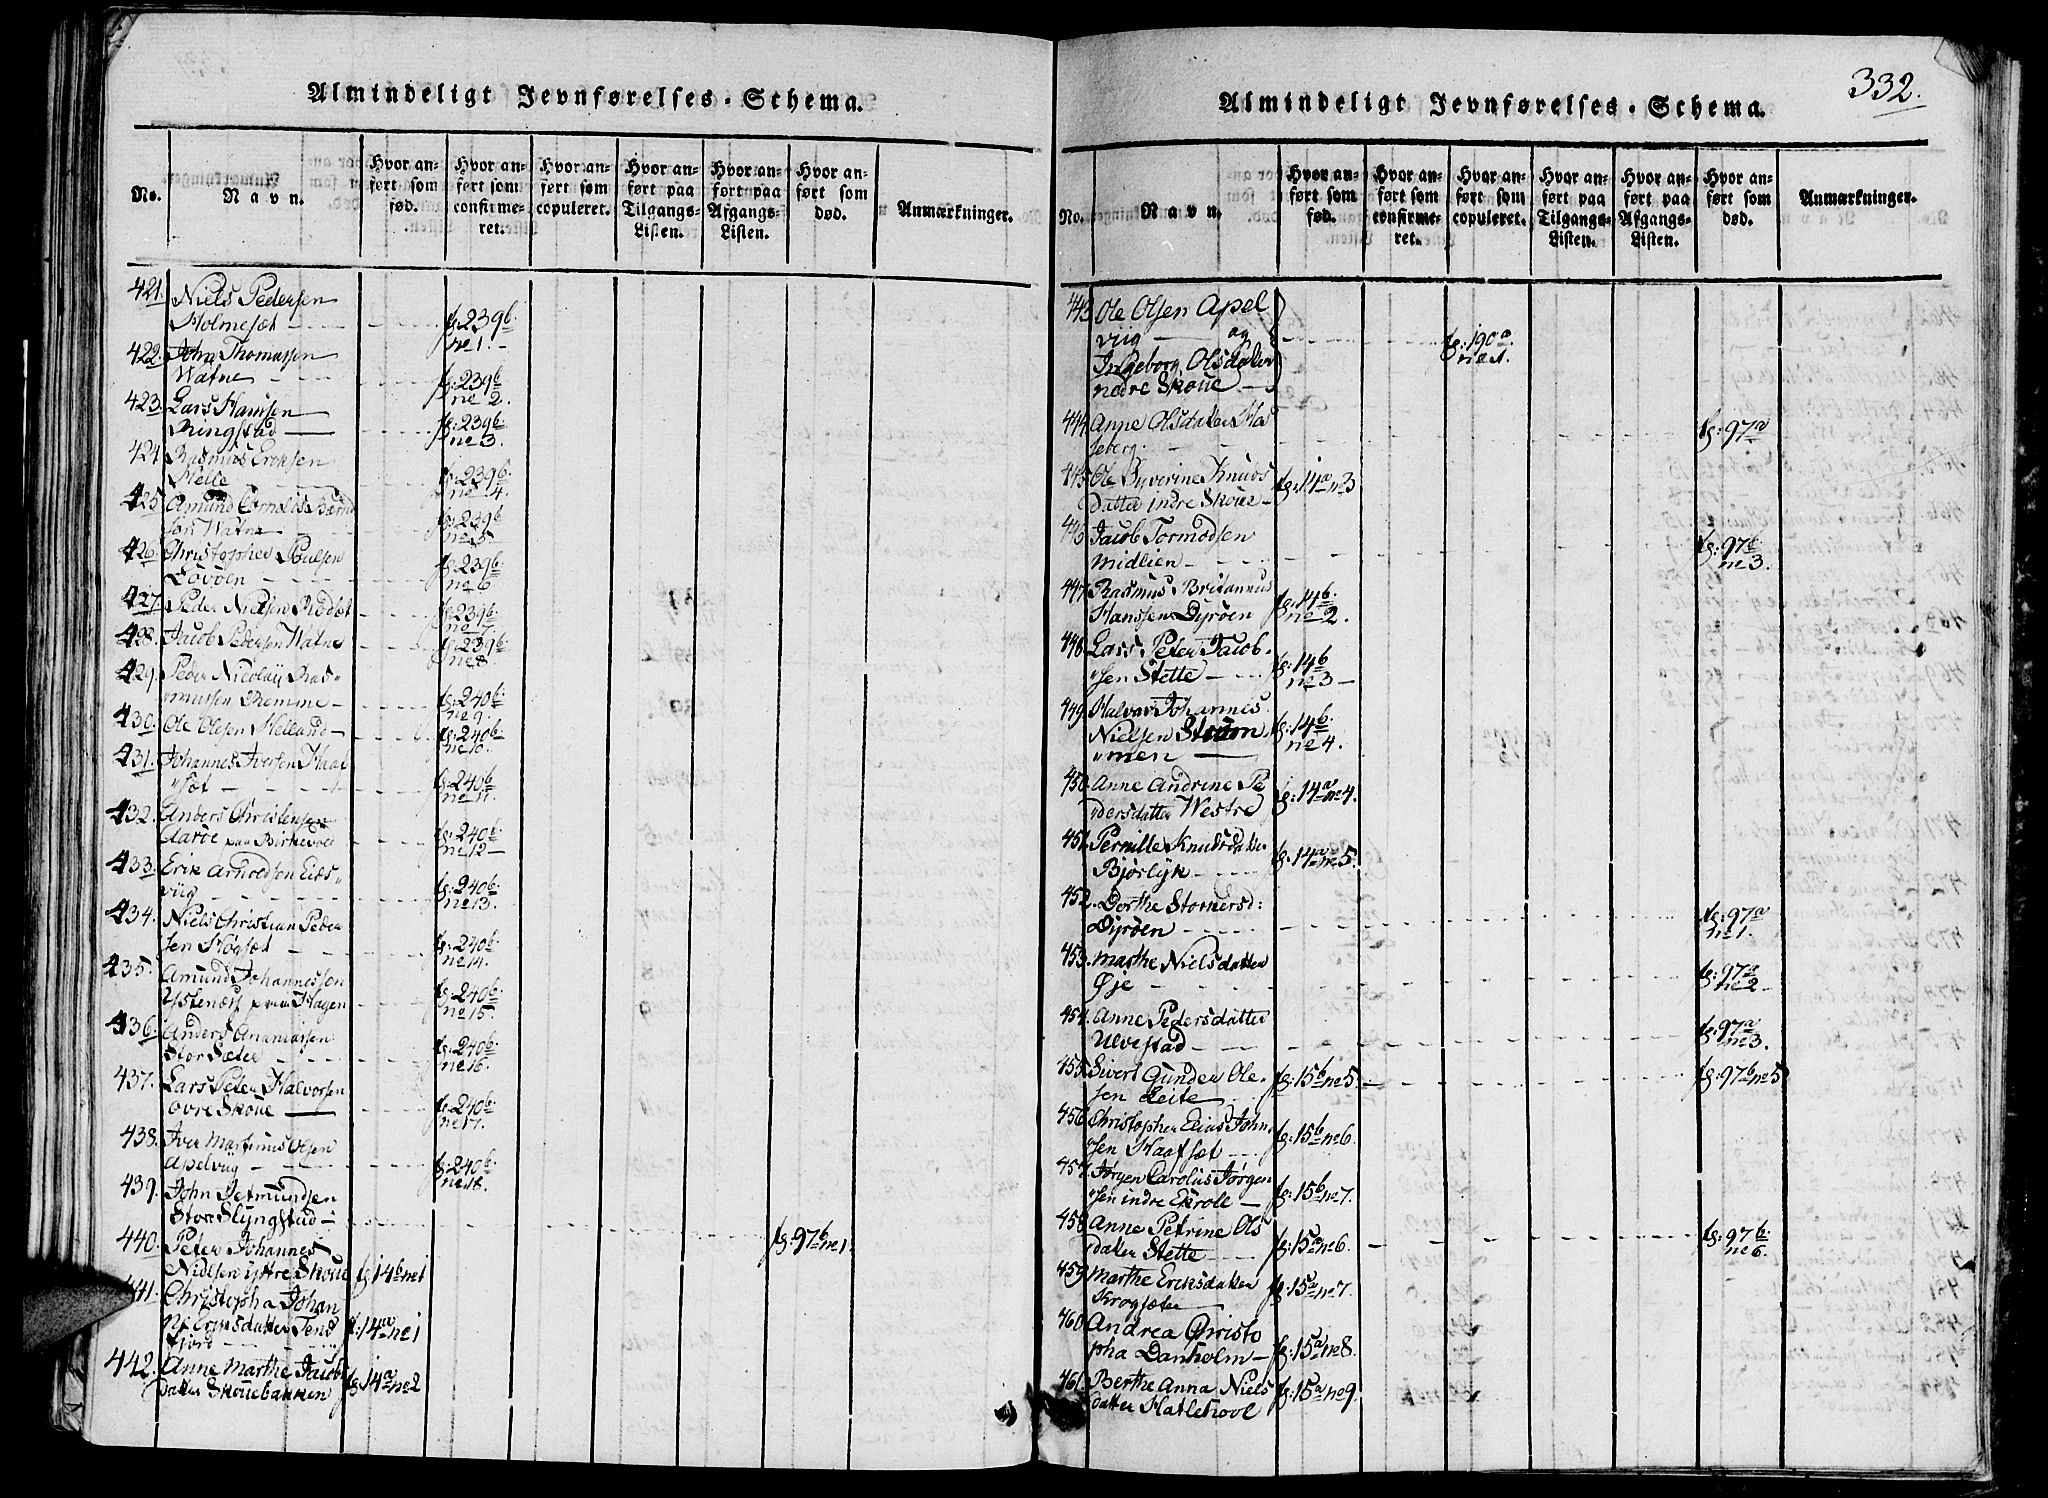 Almindeligt Jevnførelses-Schema.
No.
Navn.
Hvor anført som fød.
Hvor anført som confirmeret.
Hvor anført som copuleret.
Hvor anført paa Tilgangs-Listen.
Hvor anført paa Afgangs-Listen.
Hvor anført som død.
Anmærkninger.
421. Niels Pedersen
Holmesæt fg: 239b
no 1.
422. John Thomassen
Watne fg: 239b
no 2.
423. Lars Hansen
Ringstad fg: 239b
no 3.
424 Rasmus Eriksen
Melle fg: 239b
no 4.
425. Amund Cornelis Bærnd
sen Watne fg: 239b
no 5.
426. Christopher Poulsen
Løvøen fg: 239b
no 6
427. Peder Nielsen Rødset fg: 239b
no 7.
428. Jacob Pedersen Watne fg: 239b
no 8
429. Peder Nicolaij Ras„
mussen Bremme fg: 240b
no 9.
430. Ole Olsen Helland fg: 240b
no 10.
431. Johannes Iversen Haaf
„sæt fg: 240b
no 11.
432. Anders Christensen
Aarøe paa Birkevold fg: 240b
no 12
433. Erik Arnredsen Eids„
viig fg: 240b
no 13.
434. Niels Christian Peder
sen Høgsæt fg: 240b
no 14.
435. Amund Johannessen
Ystenæs paa Hagen fg: 240b
no 15.
436. Anders Ananiassen
StorSæter fg: 240b
no 16.
437. Lars Peter Halvorsen
øvre Skoue fg: 240b
no 17.
438. Iver Martinus Olsen
Apelviig fg: 240b
no 18.
439. John Jetmundsen
Store Slyngstad fg: 97b no 1.
440. Peter Johannes
Nielsen yttre Skoue fg: 14b no 1
441. Christopha Johan
ne Eriksdatter Tens
fjord fg: 14a no 1
442. Anne Marthe Jacobs
datter Skouebakken fg: 14a no 2
332.
Almindeligt Jevnførelses-Schema.
No.
Navn.
Hvor anført som fød.
Hvor anført som confirmeret.
Hvor anført som copuleret.
Hvor anført paa Tilgangs-Listen.
Hvor anført paa Afgangs-Listen.
Hvor anført som død.
Anmærkninger.
443 Ole Olsen Apel
viig og fg: 190a
no 1.
Ingeborg Olsdatter
nedre Skoue
444 Anne Olsdatter Ha
seberg. fg: 97a
445. Ole Syverine Knuds
datter indre Skoue fg: 14a no 3
446 Jacob Tormodsen
Midlien fg: 97b
no 3.
447. Rasmus Britannus
Hanssen Dyrøen fg: 14b
no 2.
448. Lars Peter Jacob„
„sen Stette fg: 14b
no 3
449. Halvor Johannes
Nielsen Strøm fg: 14b
no 4.
„men
450. Anne Andrine Pe
dersdatter Westre fg: 14a no 4.
451. Pernille Knudsdatter
Bjørlyk fg: 14a no 5.
452. Dorthe Storkersd:
Dyrøen fg: 97a
no 1.
453. Marthe Nielsdatter
Øje fg: 97a
no 2
454. Anne Pedersdatter
Ulvestad fg: 97a
no 3.
455. Sivert Gunder Ole-
sen Leite fg: 15b no 5. fg: 97b no 5
456. Christopher Elias John
„sen Haafsæt fg: 15b no 6.
457. Jørgen Carolus Jørgen
„sen indre Ekrole fg: 15b no 7.
458. Anne Petrine Ols
datter Stette fg: 15a no 6. fg: 97b
no 6.
459 Marthe Eriksdatter
Krogsæter fg: 15a no 7.
460. Andrea Christo
pha Danholm fg: 15a no 8.
461. Berthe Anna Niels
datter Hatlehool fg: 15a no 9.